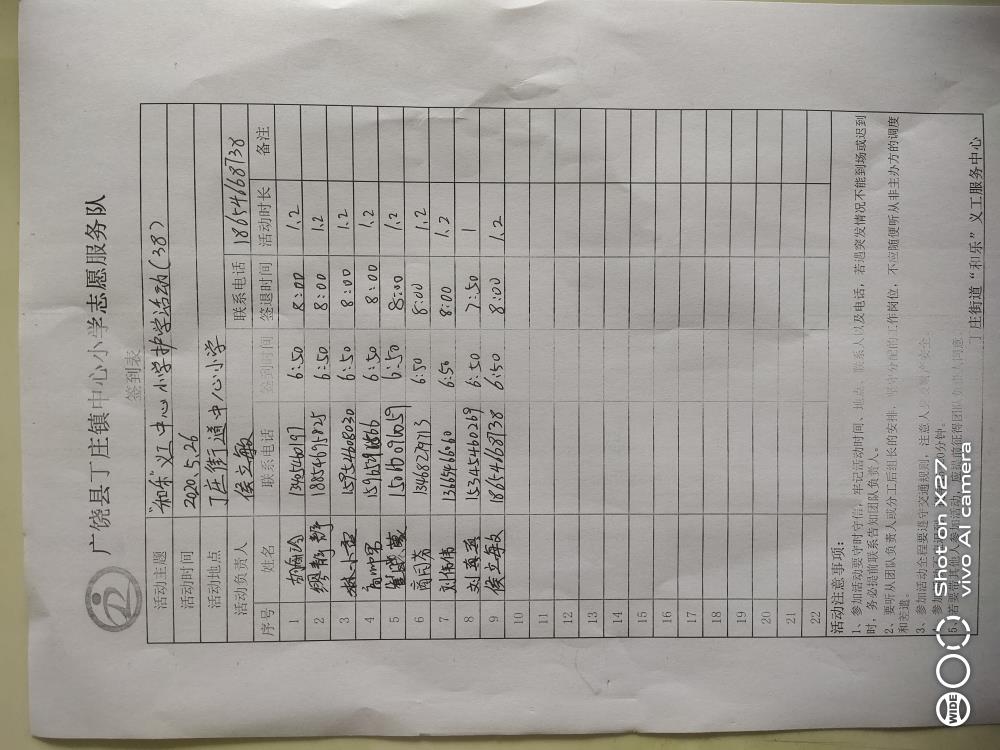 广饶县丁庄镇中心小学志愿服务队
签到表
活动主题 "和乐"义工中心小学护学活动(38)
活动时间 2020.5.26
活动地点 丁庄街道中心小学
活动负责人 侯立敏 联系电话 18654668738
序号 姓名 联系电话 签到时间 签退时间 活动时长 备注
1 13405460197 6:50 8:00 1.2
2 缪静静 18854675825 6:50 8:00 1.2
3 林小霞 15954608020 6:50 8:00 1.2
4 6:50 8:00 1.2
5 6:50 8:00 1.2
6 6:50 8:00 1.2
7 刘伟伟 13654666660 6:50 8:00 1.2
8 刘英英 15345460269 6:50 7:50 1
9 侯立敏 18654668738 6:50 8:00 1.2
10
11
12
13
14
15
16
17
18
19
20
21
22
活动注意事项:
1、参加活动要守时守信,牢记活动时间、地点、联系人以及电话,若遇突发情况不能到场或迟到
时,务必提前联系告知团队负责人。
2、要听从团队负责人或分工后组长的安排,坚守分配的工作岗位,不应随便听从非主办方的调度
和差遣。
3、参加活动全程要遵守交通规则,注意人身及财产安全。
参加 分钟。
5、若要带其他人参加活动,应提前征得团队负责人同意。
丁庄街道"和乐"义工服务中心
WIDE
Shot on X27
vivo AI camera